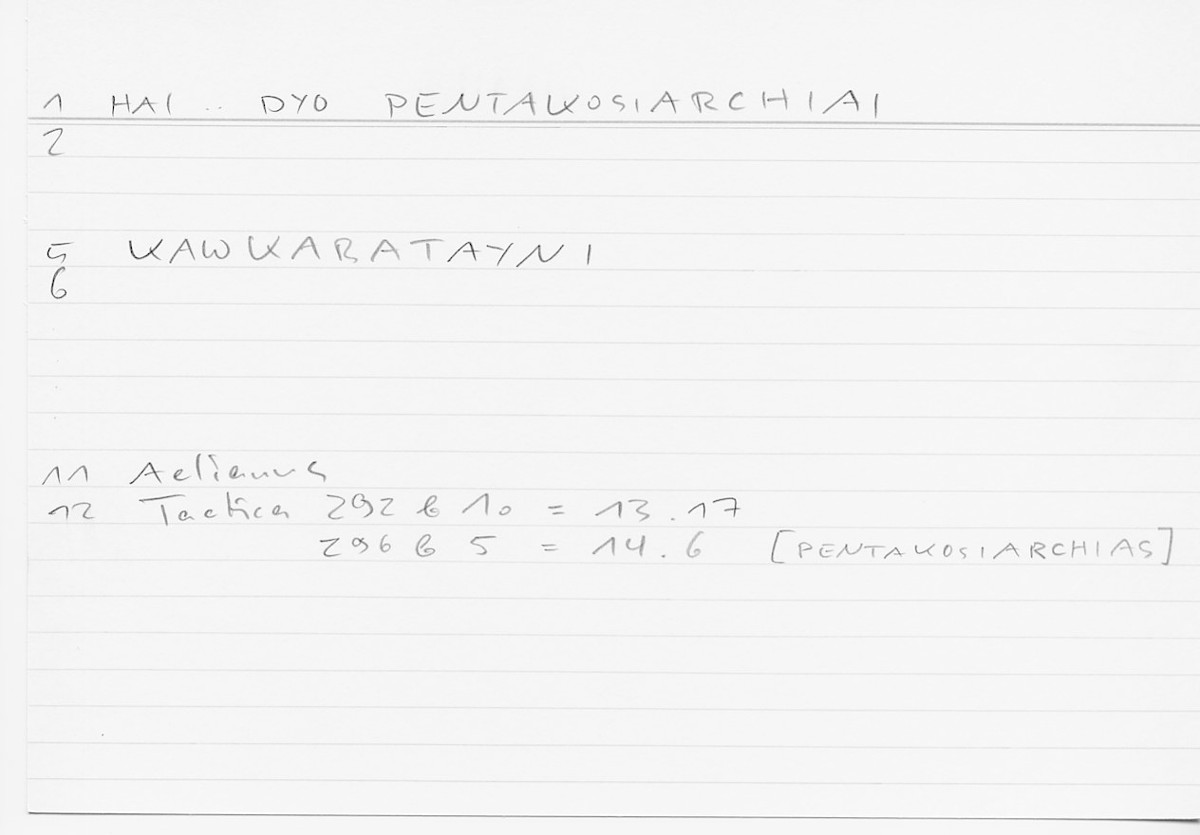 1 HAI .. DYO PENTAKOSIARCHIAI
2
5 KAWKABATAYNI
6
11 Aelianus
12 Tactica 292 b 10 = 13.17
296 b 5 = 14.6 [PENTAKOSIARCHIAS]